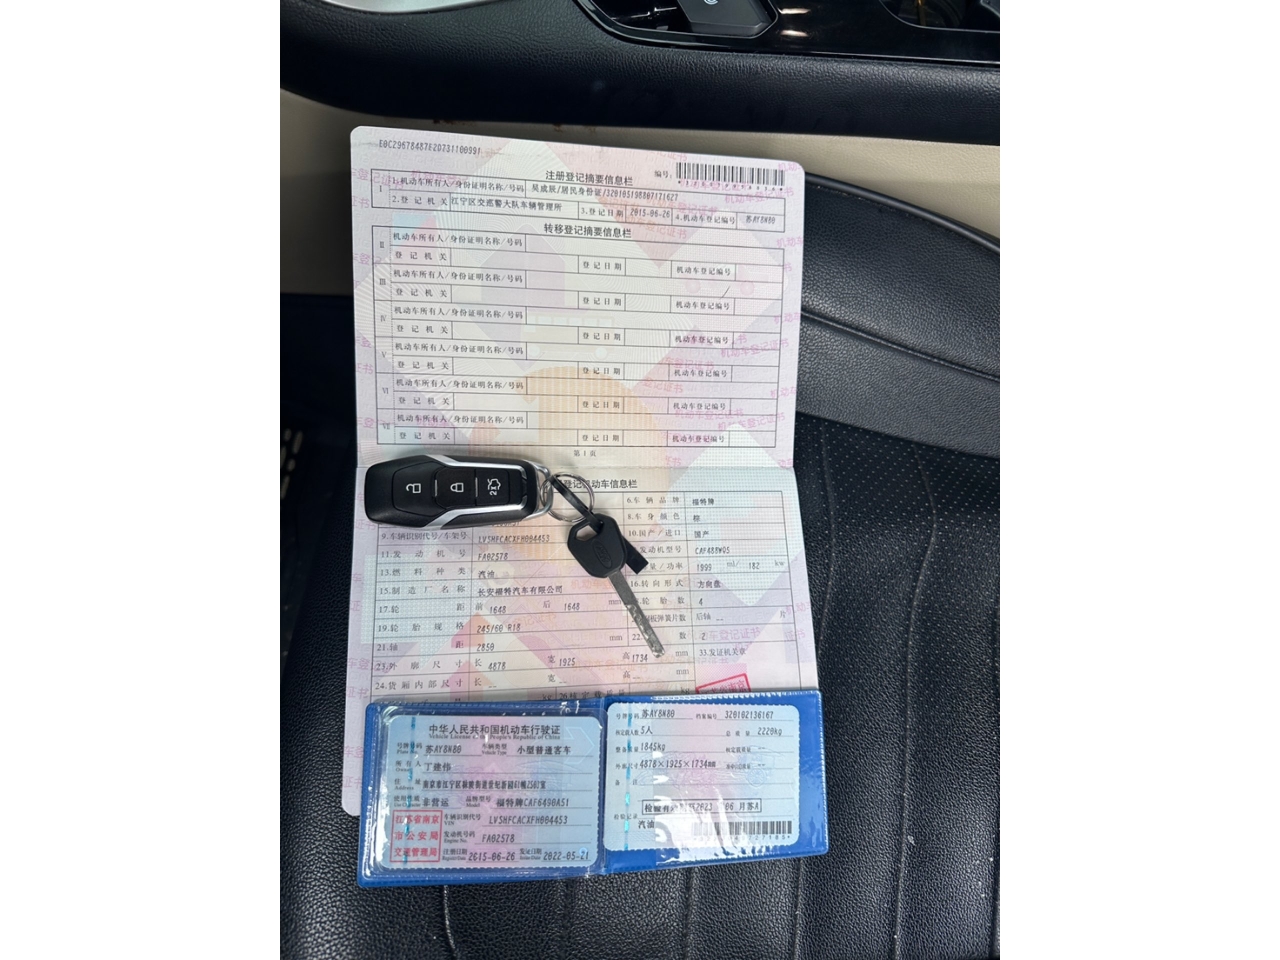 E0C29678487E20731100991
注册登记摘要信息栏
编号:
I 1.机动车所有人/身份证明名称/号码 吴成辰/居民身份证/320105198807171627
2.登记机关 江宁区交巡警大队车辆管理所 3.登记日期 2015-06-26 4.机动车登记编号 苏AY8N80
转移登记摘要信息栏
II 机动车所有人/身份证明名称/号码
登记机关 登记日期 机动车登记编号
III 机动车所有人/身份证明名称/号码
登记机关 登记日期 机动车登记编号
IV 机动车所有人/身份证明名称/号码
登记机关 登记日期 机动车登记编号
V 机动车所有人/身份证明名称/号码
登记机关 登记日期 机动车登记编号
VI 机动车所有人/身份证明名称/号码
登记机关 登记日期 机动车登记编号
VII 机动车所有人/身份证明名称/号码
登记机关 登记日期 机动车登记编号
第1页
登记机动车信息栏
6.车辆品牌 福特牌
8.车身颜色 棕
9.车辆识别代号/车架号 LVSHFCACXFH004453 10.国产/进口 国产
11.发动机号 FA02578 发动机型号 CAF488WQ5
13.燃料种类 汽油 量/功率 1999 ml/ 182 kw
15.制造厂名称 长安福特汽车有限公司 16.转向形式 方向盘
17.轮距 前 1648 后 1648 mm 轮胎数 4
19.轮胎规格 245/60 R18 板弹簧片数 后轴 -- 片
21.轴距 2850 mm 22. 数 2
23.外廓尺寸 长 4878 宽 1925 高 1734 mm 33.发证机关章
24.货厢内部尺寸 长 -- 宽 -- 高 -- mm
中华人民共和国机动车行驶证
Vehicle License of the People's Republic of China
号牌号码 苏AY8N80 车辆类型 小型普通客车
Plate No. Vehicle Type
所有人 丁建伟
Owner
住址
Address
使用性质 非营运 品牌型号 福特牌CAF6490A51
Use Character Model
江苏省南京市公安局交通管理局
车辆识别代号 LVSHFCACXFH004453
VIN
发动机号码 FA02578
Engine No.
注册日期 2015-06-26 发证日期 2022-05-21
Register Date Issue Date
号牌号码 苏AY8N80 档案编号 320102136167
核定载人数 5人 总质量 2220kg
整备质量 1845kg 核定载质量 --
外廓尺寸 4878×1925×1734mm 准牵引总质量 --
备注
检验记录
汽油